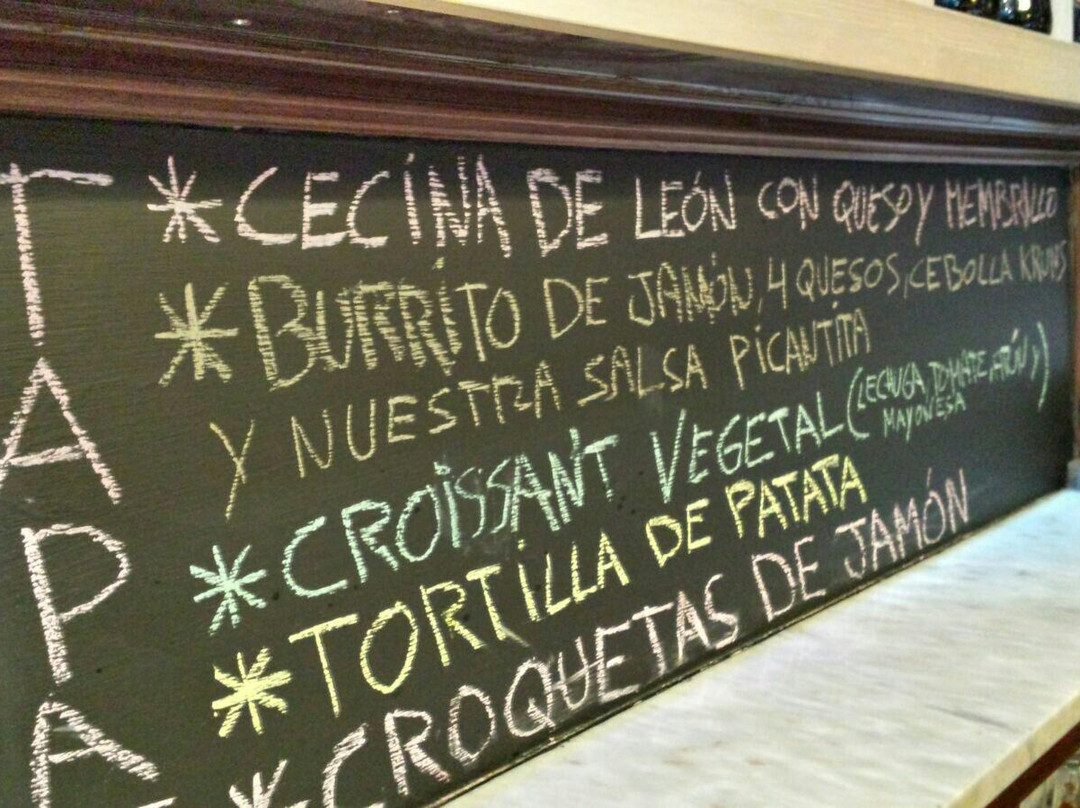 TAPA
* CECINA DE LEÓN CON QUESO Y MEMBRILLO
* BURRITO DE JAMÓN, 4 QUESOS, CEBOLLA
Y NUESTRA SALSA PICANTITA
* CROISSANT VEGETAL (LECHUGA, TOMATE, ATÚN Y
MAYONESA)
* TORTILLA DE PATATA
* CROQUETAS DE JAMÓN